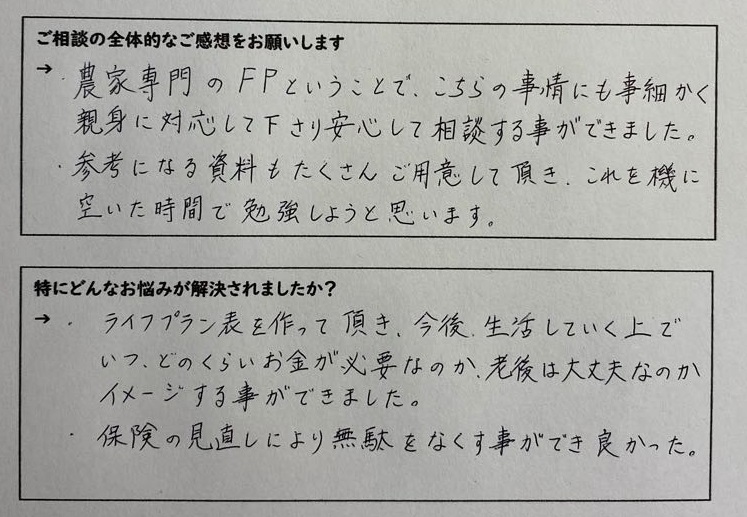 ご相談の全体的なご感想をお願いします
→・農家専門のFPということで、こちらの事情にも事細かく
親身に対応して下さり安心して相談する事ができました。
・参考になる資料もたくさんご用意して頂き、これを機に
空いた時間で勉強しようと思います。
特にどんなお悩みが解決されましたか？
→・ライフプラン表を作って頂き、今後、生活していく上で
いつ、どのくらいお金が必要なのか、老後は大丈夫なのか
イメージする事ができました。
・保険の見直しにより無駄をなくす事ができ良かった。